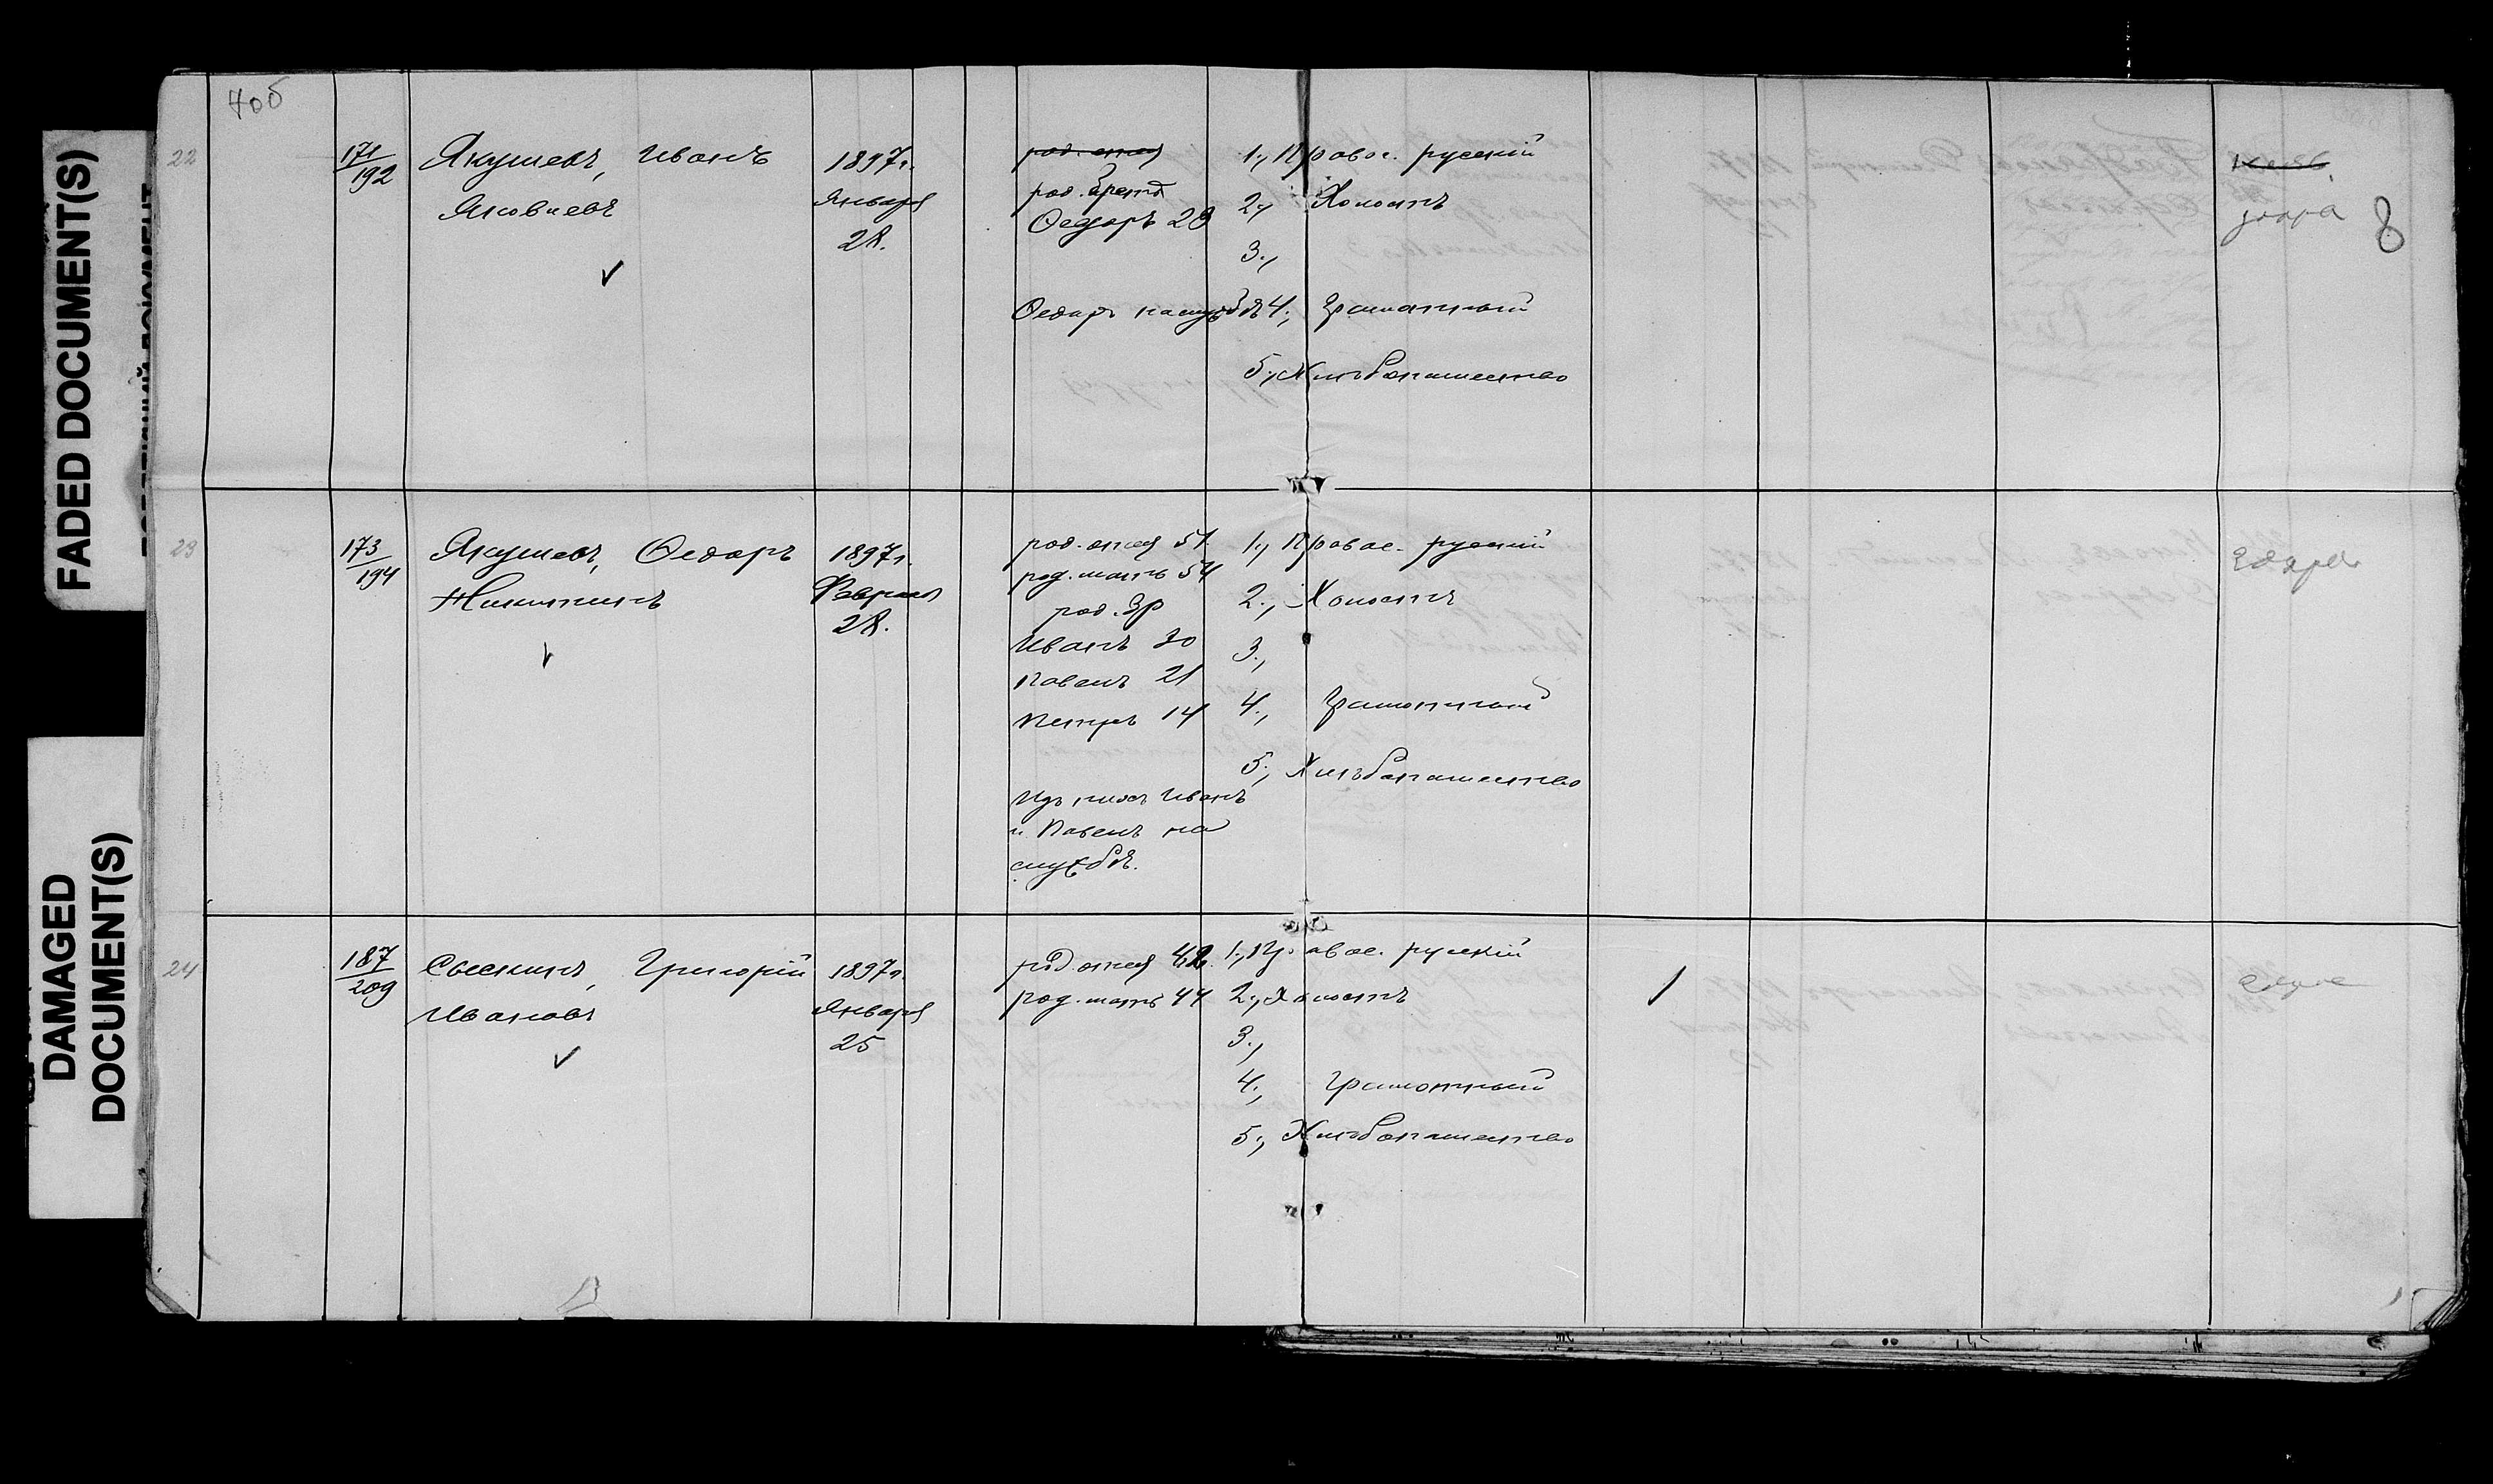 FADED DOCUMENT(S)
DAMAGED
DOCUMENT(S)
7об
8
22
171/192
Якушевъ, Иванъ
Яковлевъ
1897г.
Января
28.
род. отец
род. братъ
Федоръ 23
Федоръ на службѣ
1., Правос. русскій
2., Холостъ
3.,
4., Грамотный
5., Хлѣбопашество
23
173/194
Якушевъ, Федоръ
Никитинъ
1897г.
Февраля
28.
род. отец 51.
род. мать 54
род. бр
Иванъ 30
Павелъ 21
Петръ 14
Изъ нихъ Иванъ
и Павелъ на
службѣ.
1., Правос. русскій
2., Холостъ
3.,
4., Грамотный
5., Хлѣбопашество
24
187/209
Григорій
Ивановъ
1897г.
Января
25
род. отец 42.
род. мать 44
1., Правос. русскій
2., Холостъ
3.,
4., Грамотный
5., Хлѣбопашество